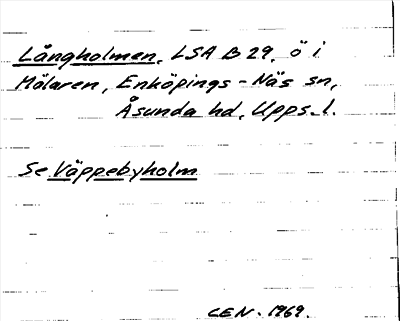 Långholmen, LSA B 29, ö i
Mälaren, Enköpings-Näs sn,
Åsunda hd, Upps. l.
Se Väppebyholm
CEN. 1969.